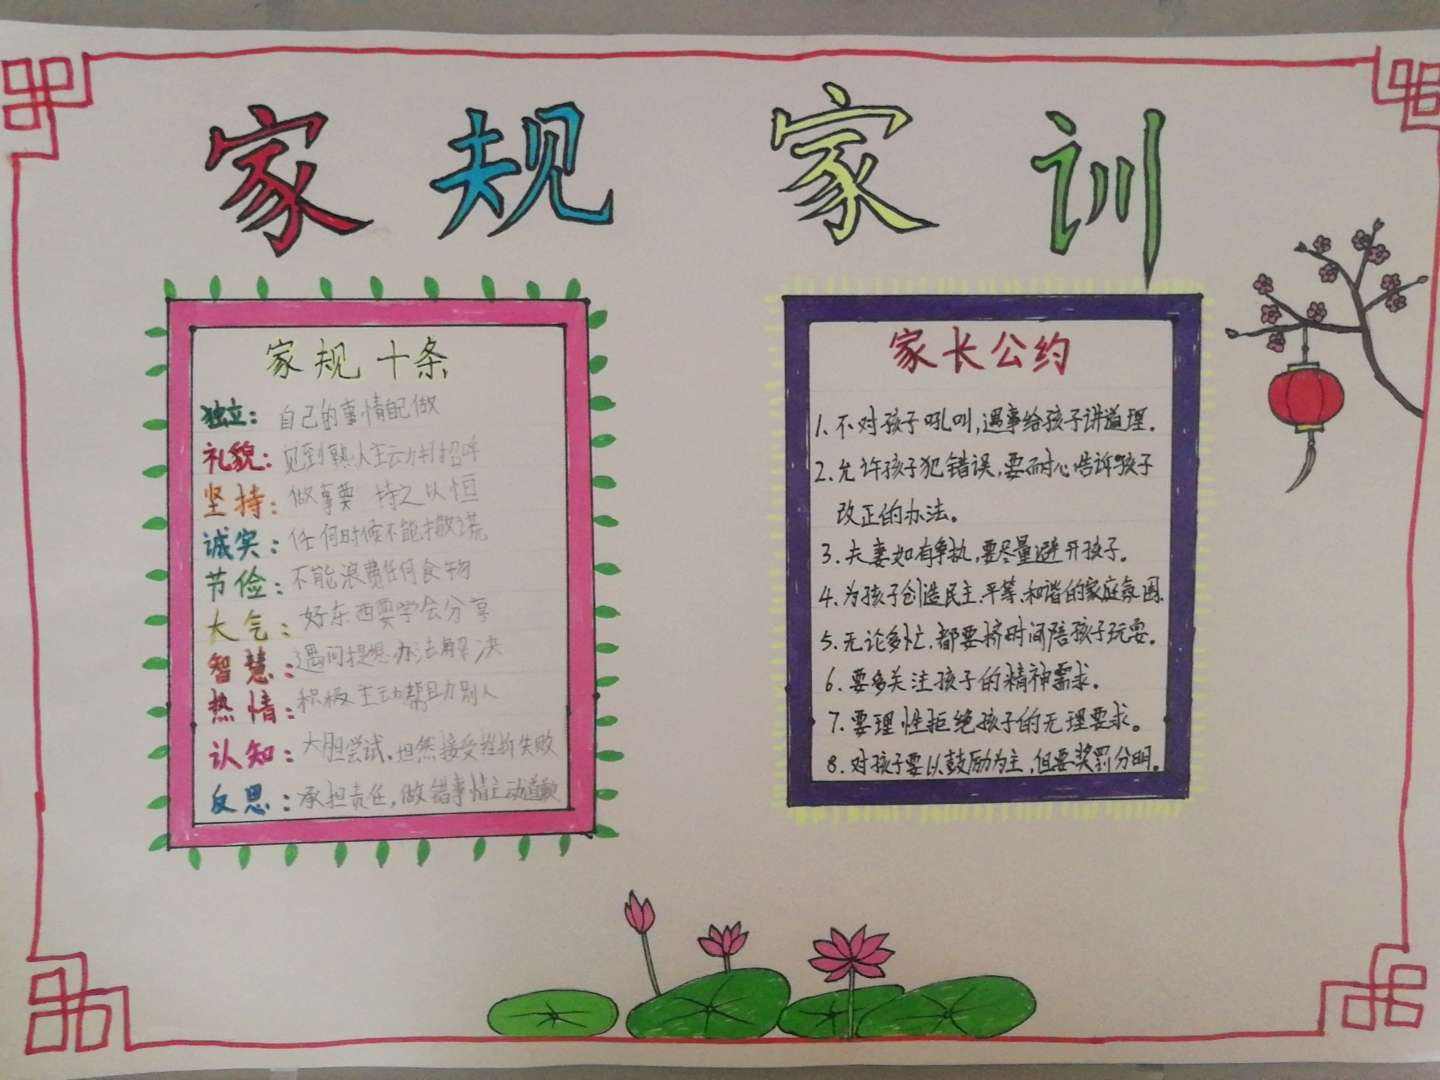 家规家训
家规十条
独立：自己的事情自己做
礼貌：见到熟人主动打招呼
坚持：做事要持之以恒
诚实：任何时候不能撒谎
节俭：不能浪费任何食物
大气：好东西要学会分享
智慧：遇问提想办法解决
热情：积极主动帮助别人
认知：大胆尝试，坦然接受挫折失败
反思：承担责任，做错事情主动道歉
家长公约
1.不对孩子吼叫，遇事给孩子讲道理。
2.允许孩子犯错误，要耐心告诉孩子
改正的办法。
3.夫妻如有争执，要尽量避开孩子。
4.为孩子创造民主、平等、和谐的家庭氛围.
5.无论多忙，都要挤时间陪孩子玩耍。
6.要多关注孩子的精神需求。
7.要理性拒绝孩子的无理要求。
8.对孩子要以鼓励为主，但要奖罚分明。